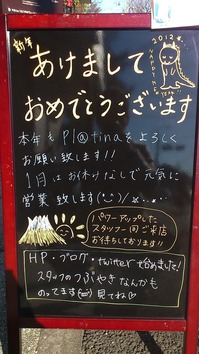 2012年
HAPPY
新年
あけまして
おめでとうございます
本年もPl@tinaをよろしく
お願い致します!!
1月はお休みなしで元気に
営業致します(^-^)/
パワーアップした
スタッフ一同ご来店
お待ちしております!!
HP・ブログ・twitter始めました!
スタッフのつぶやきなんかも
のってます 見てね♡